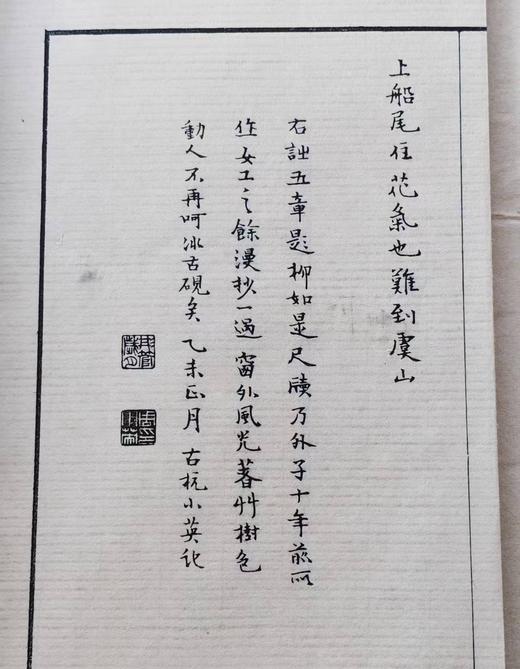 上船尾住花氣也難到虞山
右詘五章是柳如是尺牘乃外子十年前所
作女工之餘漫抄一過窗外風光著艸樹色
動人不再呵冰古硯矣 乙未正月 古杭小英記